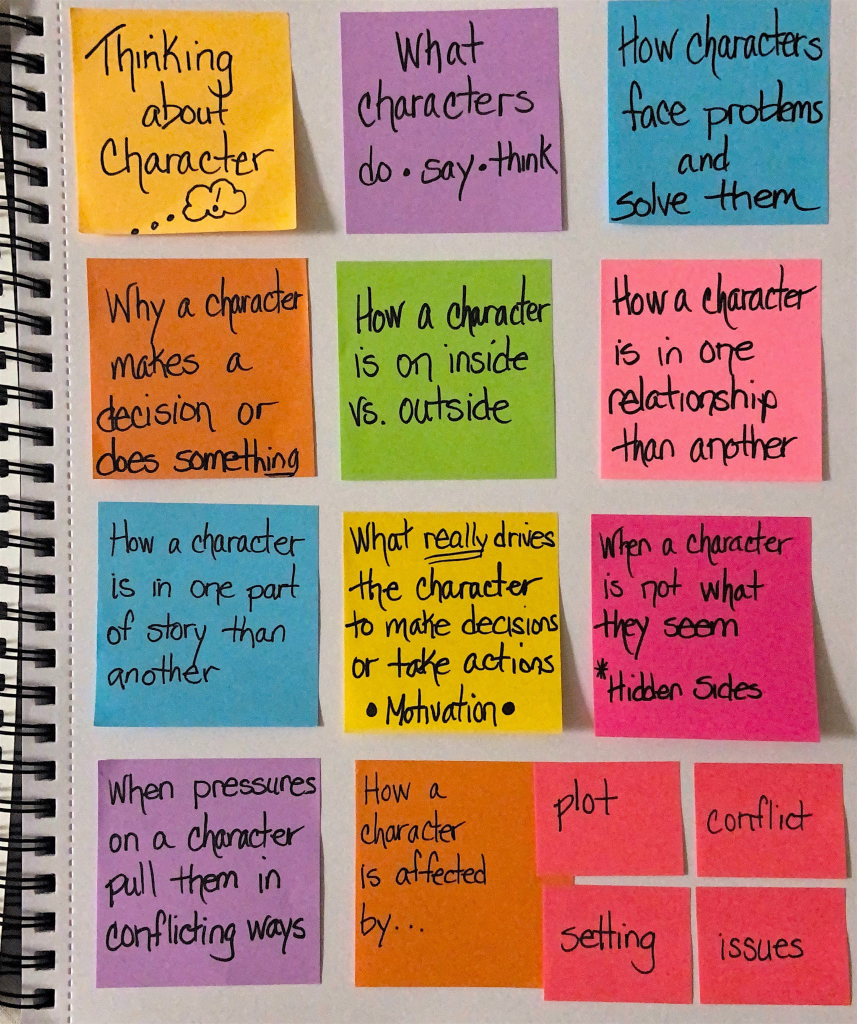 Thinking
about
Character
!
What
characters
do • say • think
How characters
face problems
and
solve them
Why a character
makes a
decision or
does something
How a character
is on inside
vs. outside
How a character
is in one
relationship
than another
How a character
is in one part
of story than
another
What really drives
the character
to make decisions
or take actions
• Motivation •
When a character
is not what
they seem
*Hidden Sides
When pressures
on a character
pull them in
conflicting ways
How a
character
is affected
by...
plot
conflict
setting
issues